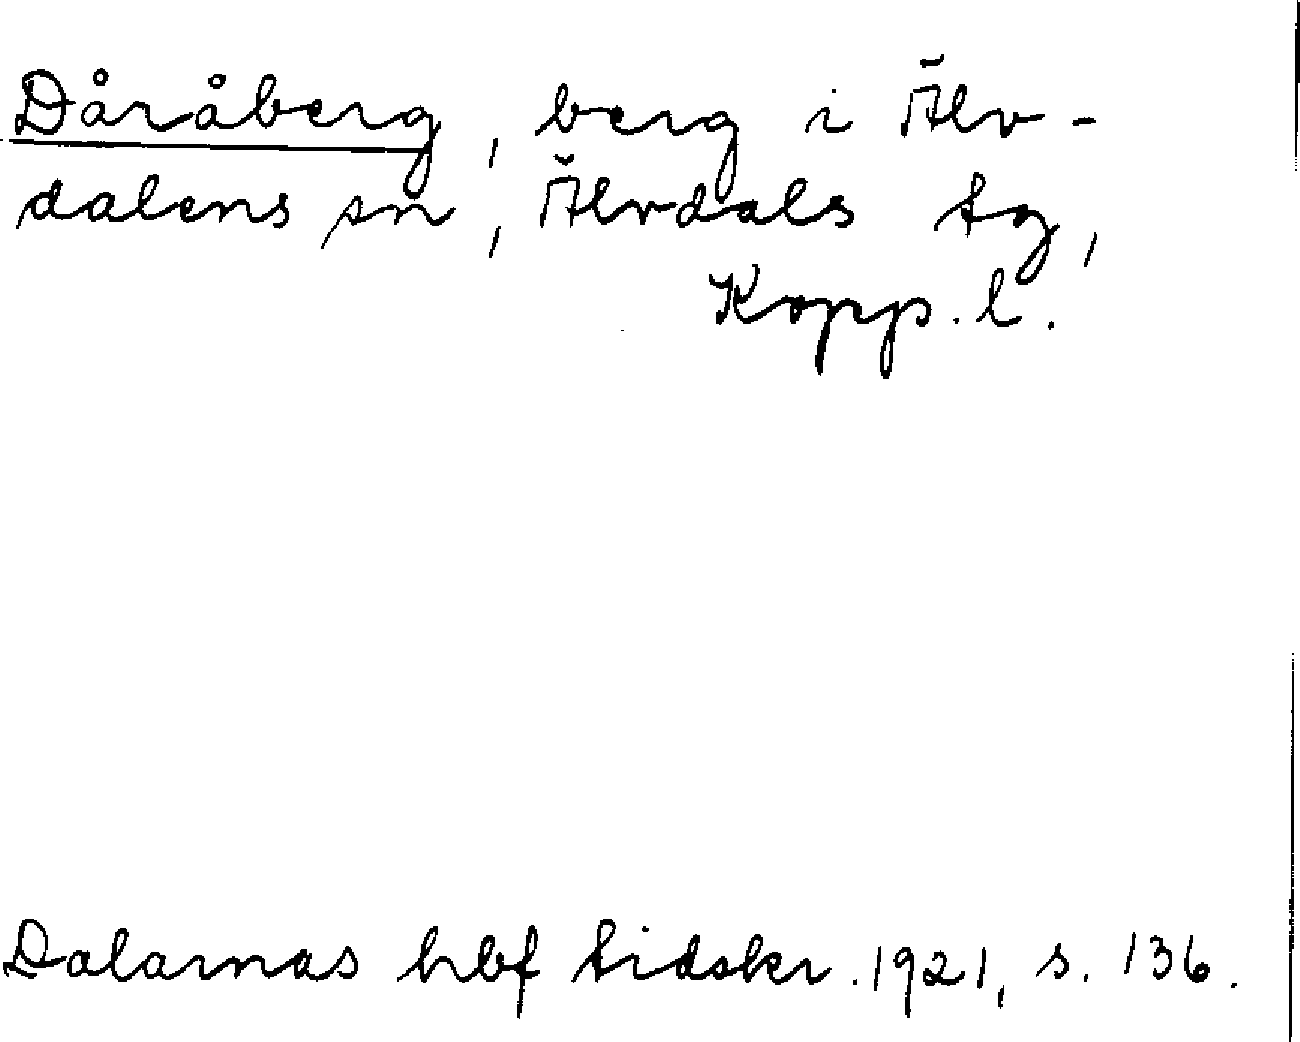 Dåråberg, berg i Älv-
dalens sn, Älvdals tg,
Kopp. l.
Dalarnas hbf tidskr. 1921, s. 136.